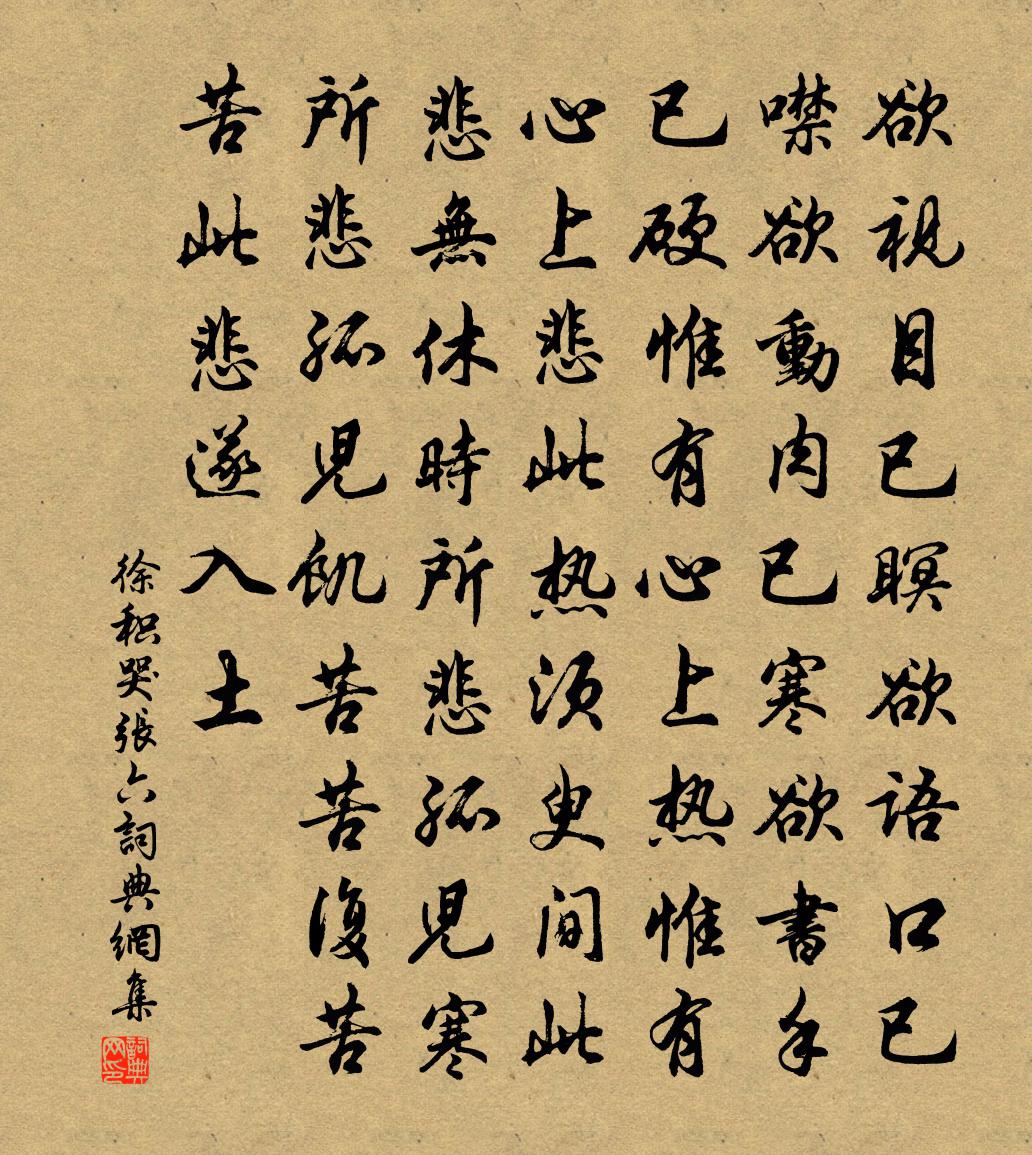 欲視目已瞑欲語口已
噤欲動肉已寒欲書手
已硬惟有心上热惟有
心上悲此热須臾間此
悲無休時所悲孤児寒
所悲孤児飢苦苦復苦
苦此悲遂入土
徐积哭張六詞典網集
詞典
网印